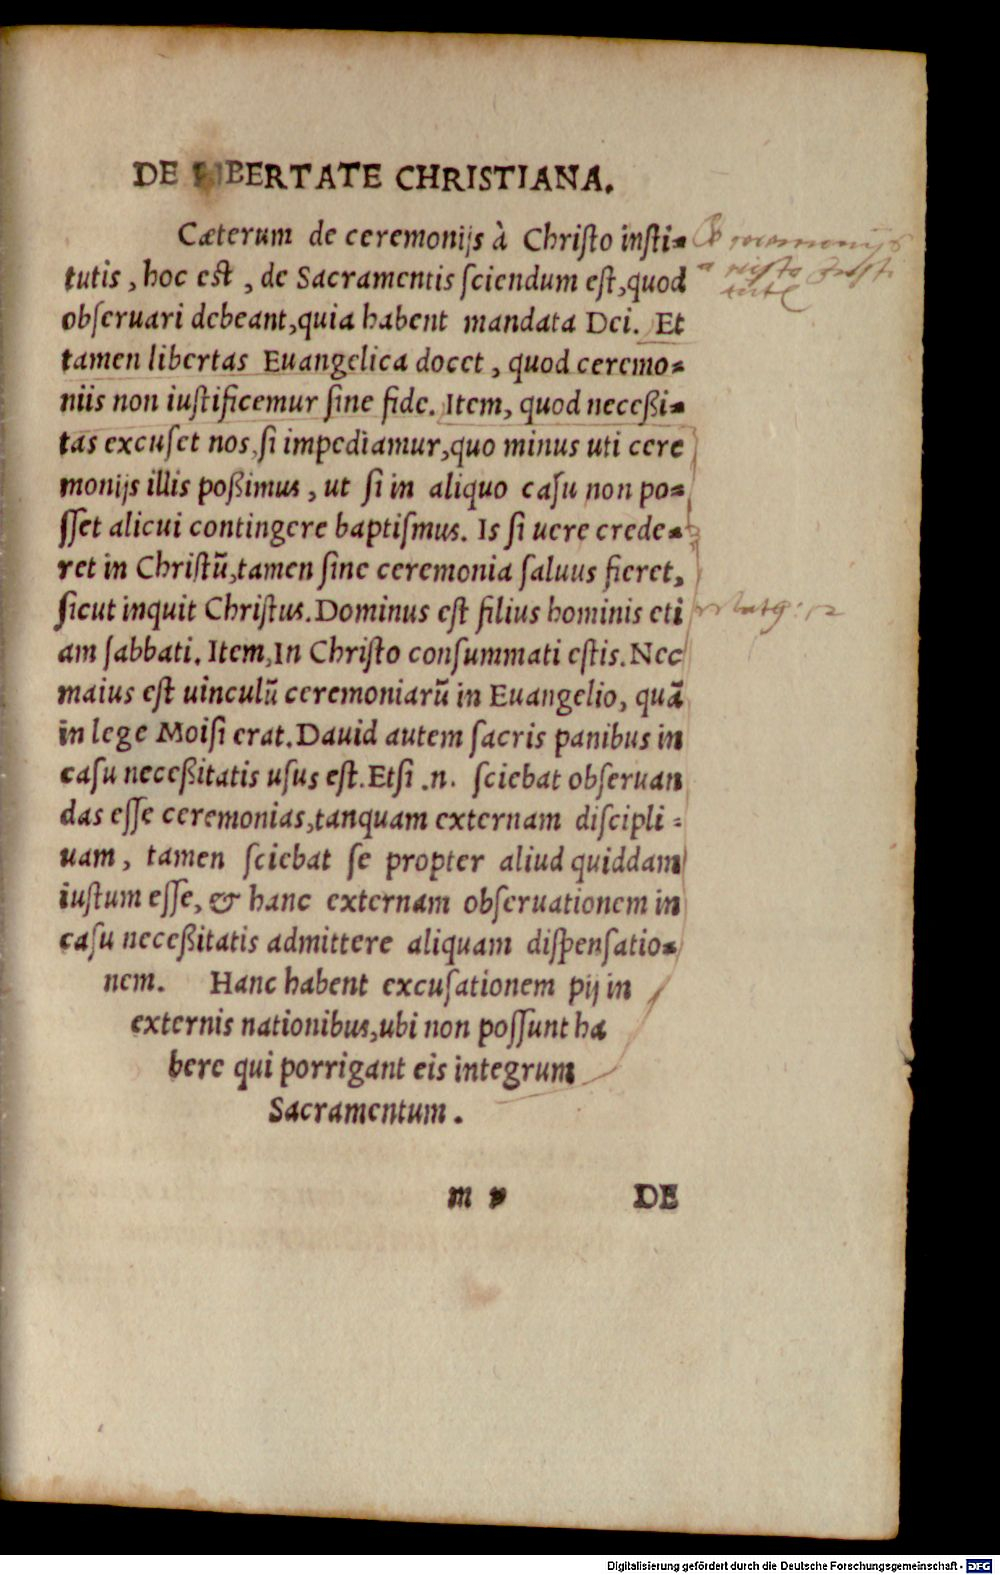 DE LIBERTATE CHRISTIANA.
Cæterum de ceremonijs à Christo insti=
tutis, hoc est, de Sacramentis sciendum est, quod
obseruari debeant, quia habent mandata Dei. Et
tamen libertas Euangelica docet, quod ceremo=
niis non iustificemur sine fide. Item, quod neceßi=
tas excuset nos, si impediamur, quo minus uti cere
monijs illis poßimus, ut si in aliquo casu non po=
sset alicui contingere baptismus. Is si uere crede=
ret in Christũ, tamen sine ceremonia saluus fieret,
sicut inquit Christus. Dominus est filius hominis eti
am sabbati. Item, In Christo consummati estis. Nec
maius est uinculũ ceremoniarũ in Euangelio, quã
in lege Moisi erat. Dauid autem sacris panibus in
casu neceßitatis usus est. Etsi .n. sciebat obseruan
das esse ceremonias, tanquam externam discipli=
uam, tamen sciebat se propter aliud quiddam
iustum esse, & hanc externam obseruationem in
casu neceßitatis admittere aliquam dispensatio=
nem. Hanc habent excusationem pij in
externis nationibus, ubi non possunt ha
bere qui porrigant eis integrum
Sacramentum.
m DE
Digitalisierung gefördert durch die Deutsche Forschungsgemeinschaft - DFG